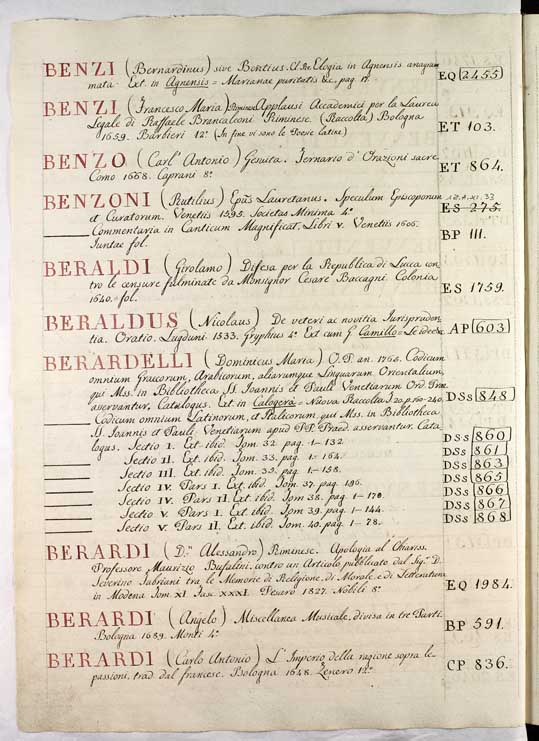 BENZI (Bernardinus) sive Bentius. Cl. Re. Elogia in Agnensis anagram
mata. Ext. in Agnensis = Marianae puritatis &c. pag. 17. EQ 2455
BENZI (Francesco Maria) Riminese Applausi Accademici per la Laurea
Legale di Raffaele Brancaleoni Riminese. (Raccolta) Bologna
1659. Barbieri 12º (In fine vi sono le Poesie latine) ET 103.
BENZO (Carl' Antonio) Gesuita. Ternario d'Orazioni sacre.
Como 1668. Caprani 8º ET 864.
BENZONI (Rutilius) Epũs Lauretanus. Speculum Episcoporum 12.A.XI.33
et Curatorum. Venetiis 1595. Societas Minima 4º ES 275.
Commentaria in Canticum Magnificat. Libri V. Venetiis 1606.
Iuntae fol. BP 111.
BERALDI (Girolamo) Difesa per la Republica di Lucca con
tro le censure fulminate da Monsignor Cesare Baccagni. Colonia
1640. fol. ES 1759.
BERALDUS (Nicolaus) De veteri ac novitia Iurispruden
tia. Oratio. Lugduni 1533. Gryphius 4º Ext. cum G. Camillo = Le idee &c AP 603
BERARDELLI (Dominicus Maria) O.P. an. 1765. Codicum
omnium Graecorum, Arabicorum, aliarumque Linguarum Orientalium,
qui Mss. in Bibliotheca SS. Ioannis et Pauli Venetiarum Ord. Praed.
asservantur, Catalogus. Ext. in Calogerà = Nuova Raccolta T. 20. p. 160-240. DSS 848
Codicum omnium Latinorum, et Italicorum, qui Mss. in Bibliotheca
SS. Ioannis et Pauli, Venetiarum apud PP. Praed. asservantur, Cata
logus. Sectio I. Ext. ibid. Tom. 32. pag. 1-132. DSS 860
Sectio II. Ext. ibid. Tom. 33. pag. 1-164. DSS 861
Sectio III. Ext. ibid. Tom. 35. pag. 1-158. DSS 863
Sectio IV. Pars I. Ext. ibid. Tom. 37. pag. 196. DSS 865
Sectio IV. Pars II. Ext. ibid. Tom. 38. pag. 1-170. DSS 866
Sectio V. Pars I. Ext. ibid. Tom. 39. pag. 1-144. DSS 867
Sectio V. Pars II. Ext. ibid. Tom. 40. pag. 1-78. DSS 868
BERARDI (D.n Alessandro) Riminese. Apologia al Chiariss.
Professore Maurizio Bufalini, contro un Articolo pubblicato dal Sig.r D.
Severino Fabriani tra le Memorie di Religione, di Morale, e di Letteratura
in Modena Tom. XI Fas. XXXI. Pesaro 1827. Nobili 8º EQ 1984.
BERARDI (Angelo) Miscellanea Musicale, divisa in tre Parti.
Bologna 1689. Monti 4º BP 591.
BERARDI (Carlo Antonio) L'Imperio della ragione sopra le
passioni, trad. dal francese. Bologna 1648. Zenero 12º CP 836.